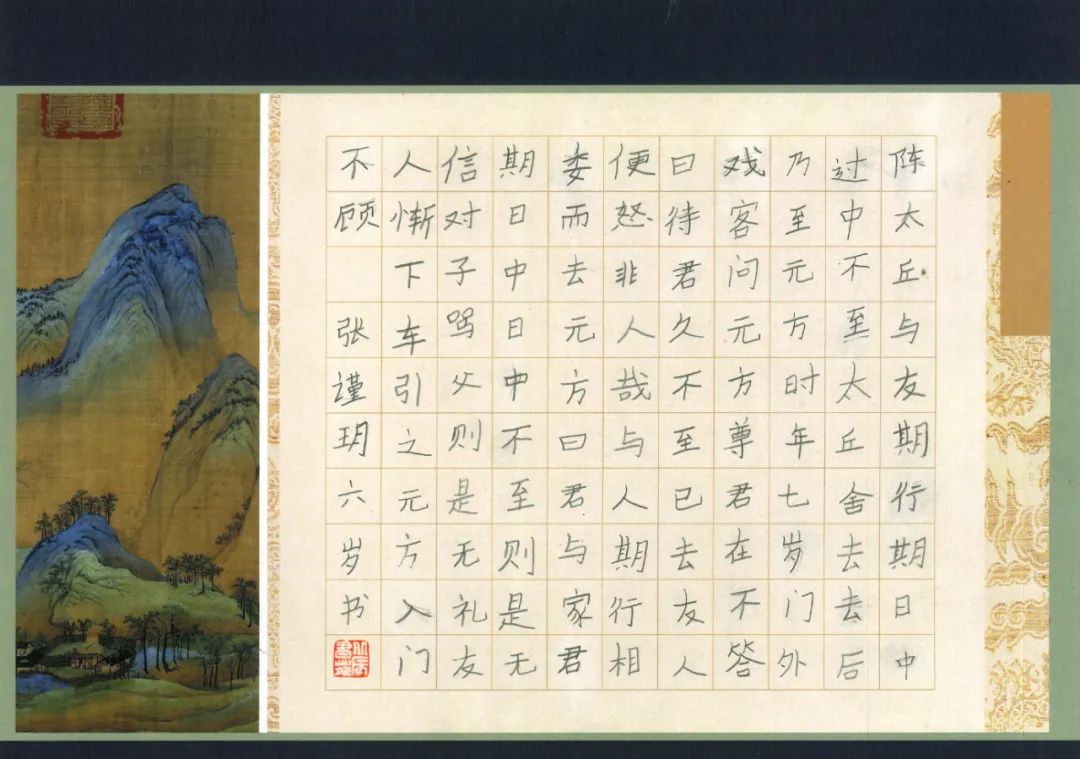 陈太丘与友期行期日中
过中不至太丘舍去去后
乃至元方时年七岁门外
戏客问元方尊君在不答
曰待君久不至已去友人
便怒非人哉与人期行相
委而去元方曰君与家君
期日中日中不至则是无
信对子骂父则是无礼友
人惭下车引之元方入门
不顾 张谨玥六岁书